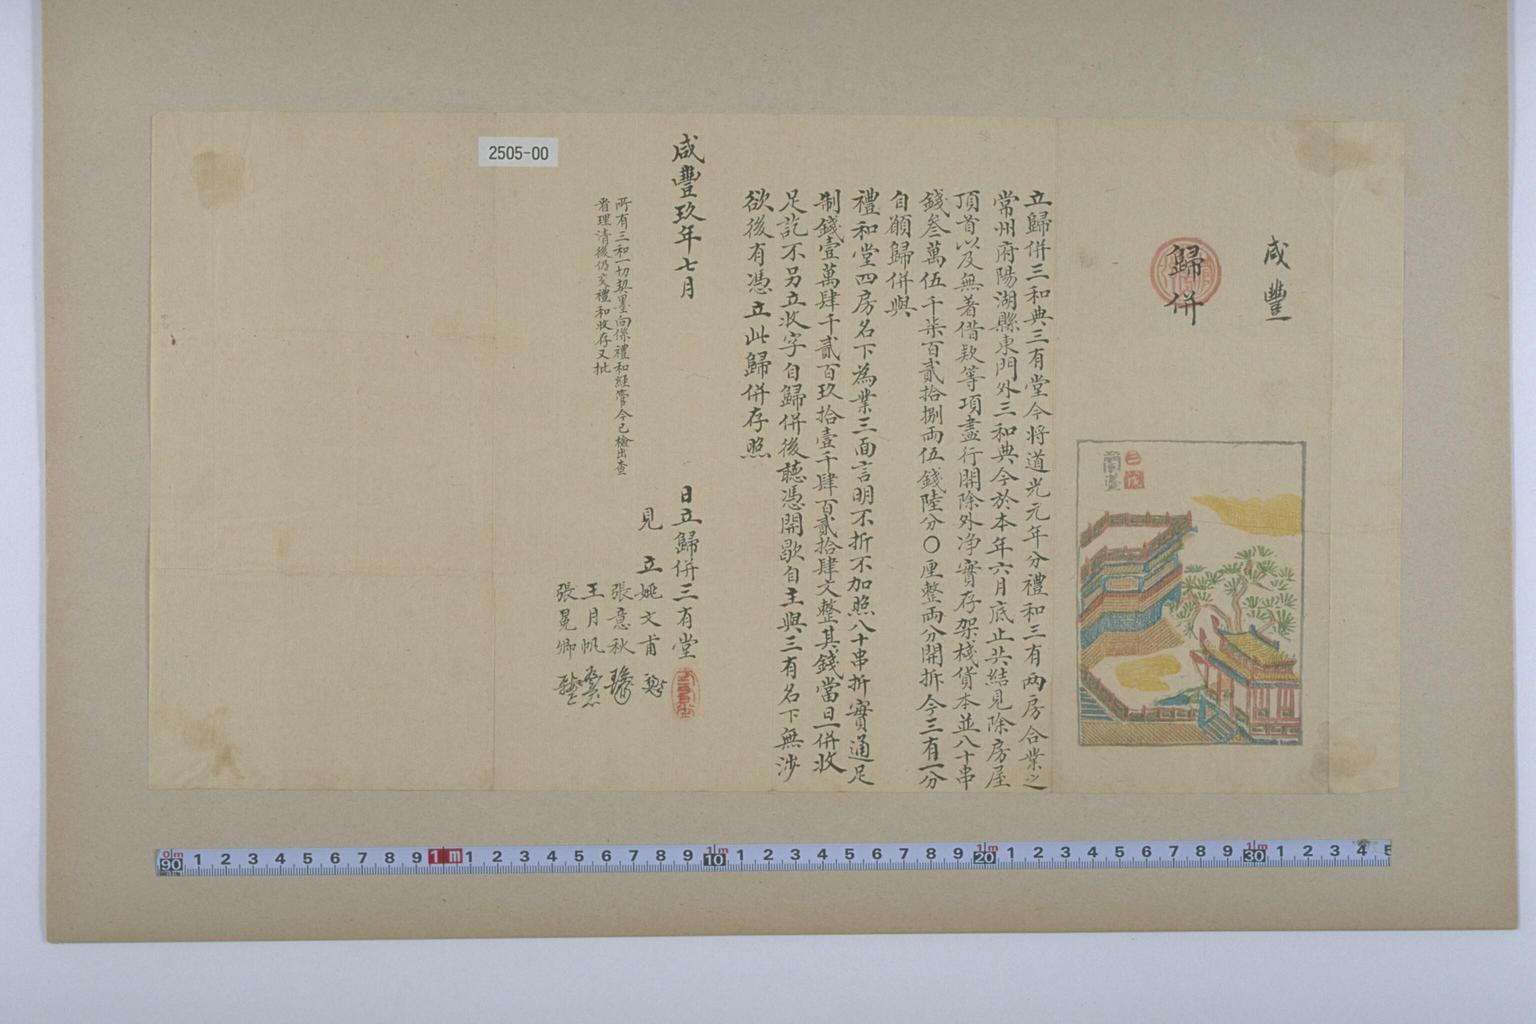 咸豐
歸併
立歸併三和典三有堂今將道光元年分禮和三有两房合業之
常州府陽湖縣東門外三和典今於本年六月底止共結見除房屋
頂首以及無著借欵等項盡行開除外净實存架棧貨本並八十串
錢叁萬伍千柒百貳拾捌両伍錢陸分〇厘整両分開拆今三有一分
自願歸併與
禮和堂四房名下為業三面言明不折不加照八十串折實通足
制錢壹萬肆千貳百玖拾壹千肆百貳拾肆文整其錢當日一併收
足訖不另立收字自歸併後聽憑開歇自主與三有名下無涉
欲後有憑立此歸併存照
咸豐玖年七月　日立歸併三有堂
見立姚文甫
張意秋
王月帆
張晃卿
所有三和一切契墨向係禮和經管今已檢出查
看理清後仍交禮和收存又批
2505-00
0 1m 90 1 2 3 4 5 6 7 8 9 1m 1 2 3 4 5 6 7 8 9 1m 10 1 2 3 4 5 6 7 8 9 1m 20 1 2 3 4 5 6 7 8 9 1m 30 1 2 3 4 5